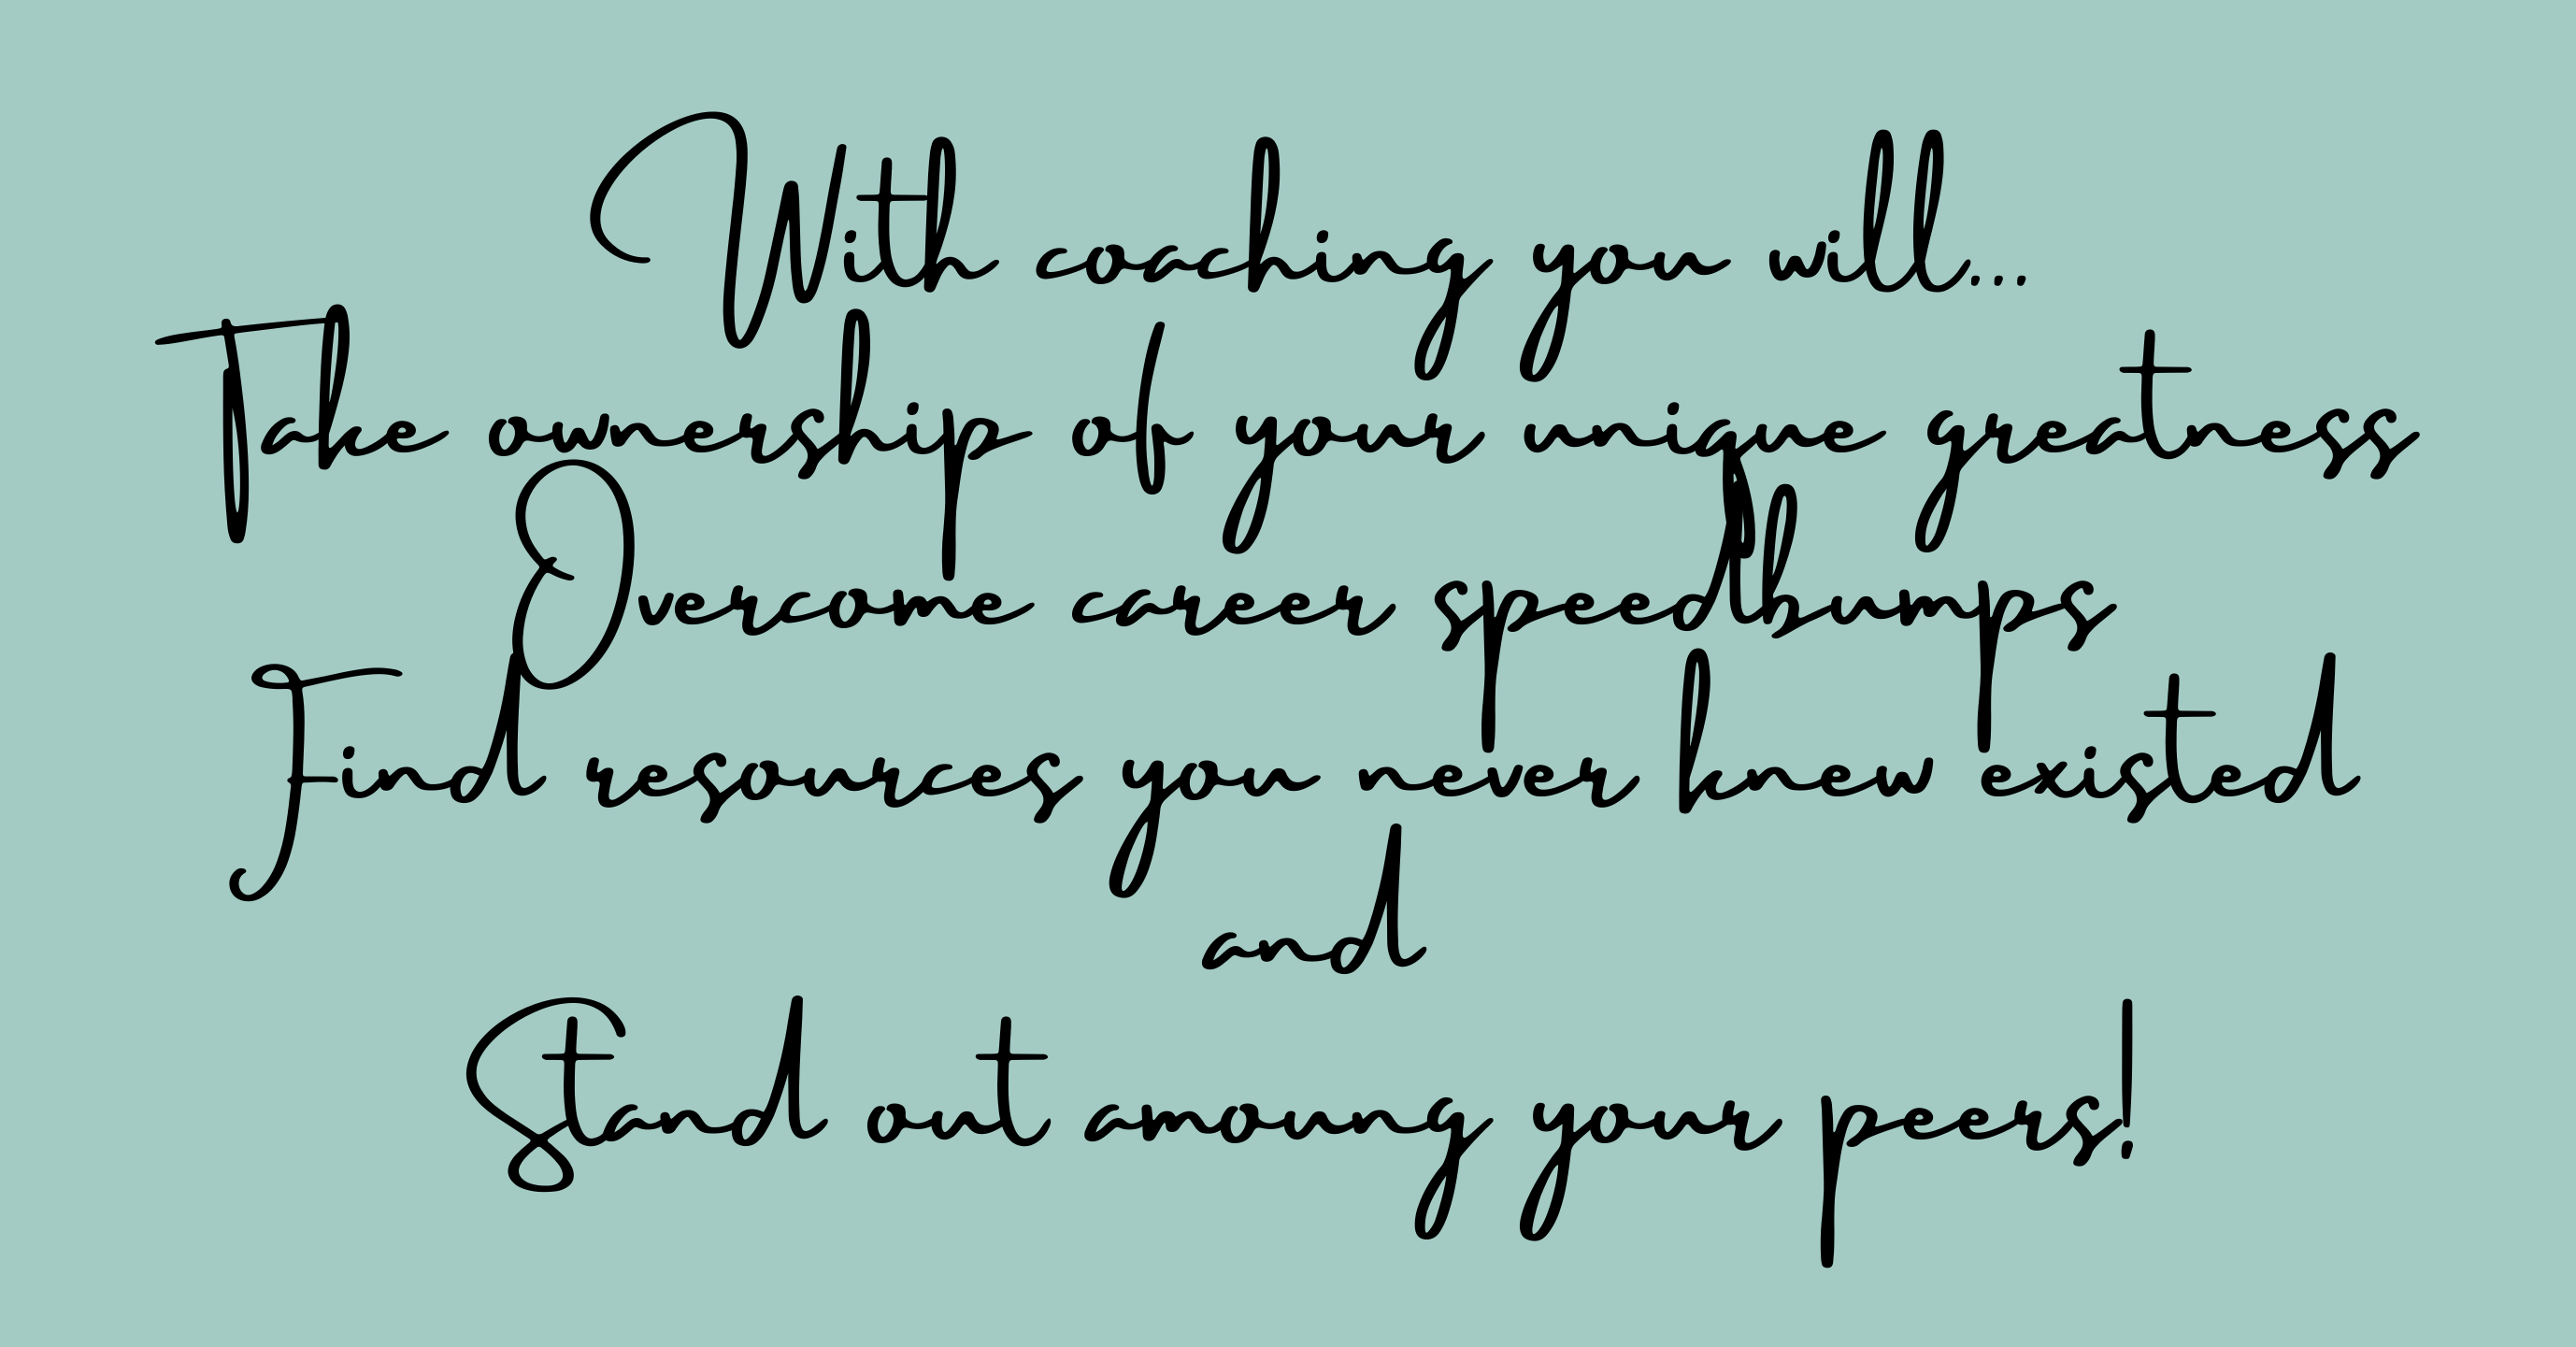 With coaching you will...
Take ownership of your unique greatness
Overcome career speedbumps
Find resources you never knew existed
and
Stand out amoung your peers!